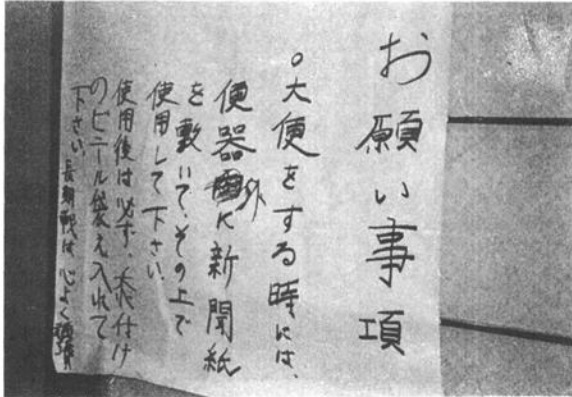 お願い事項
○大便をする時には、
便器外に新聞紙
を敷いて、その上で
使用して下さい。
使用後は必ず、備付け
のビニール袋え入れて
下さい。
長期戦は心よく頑張